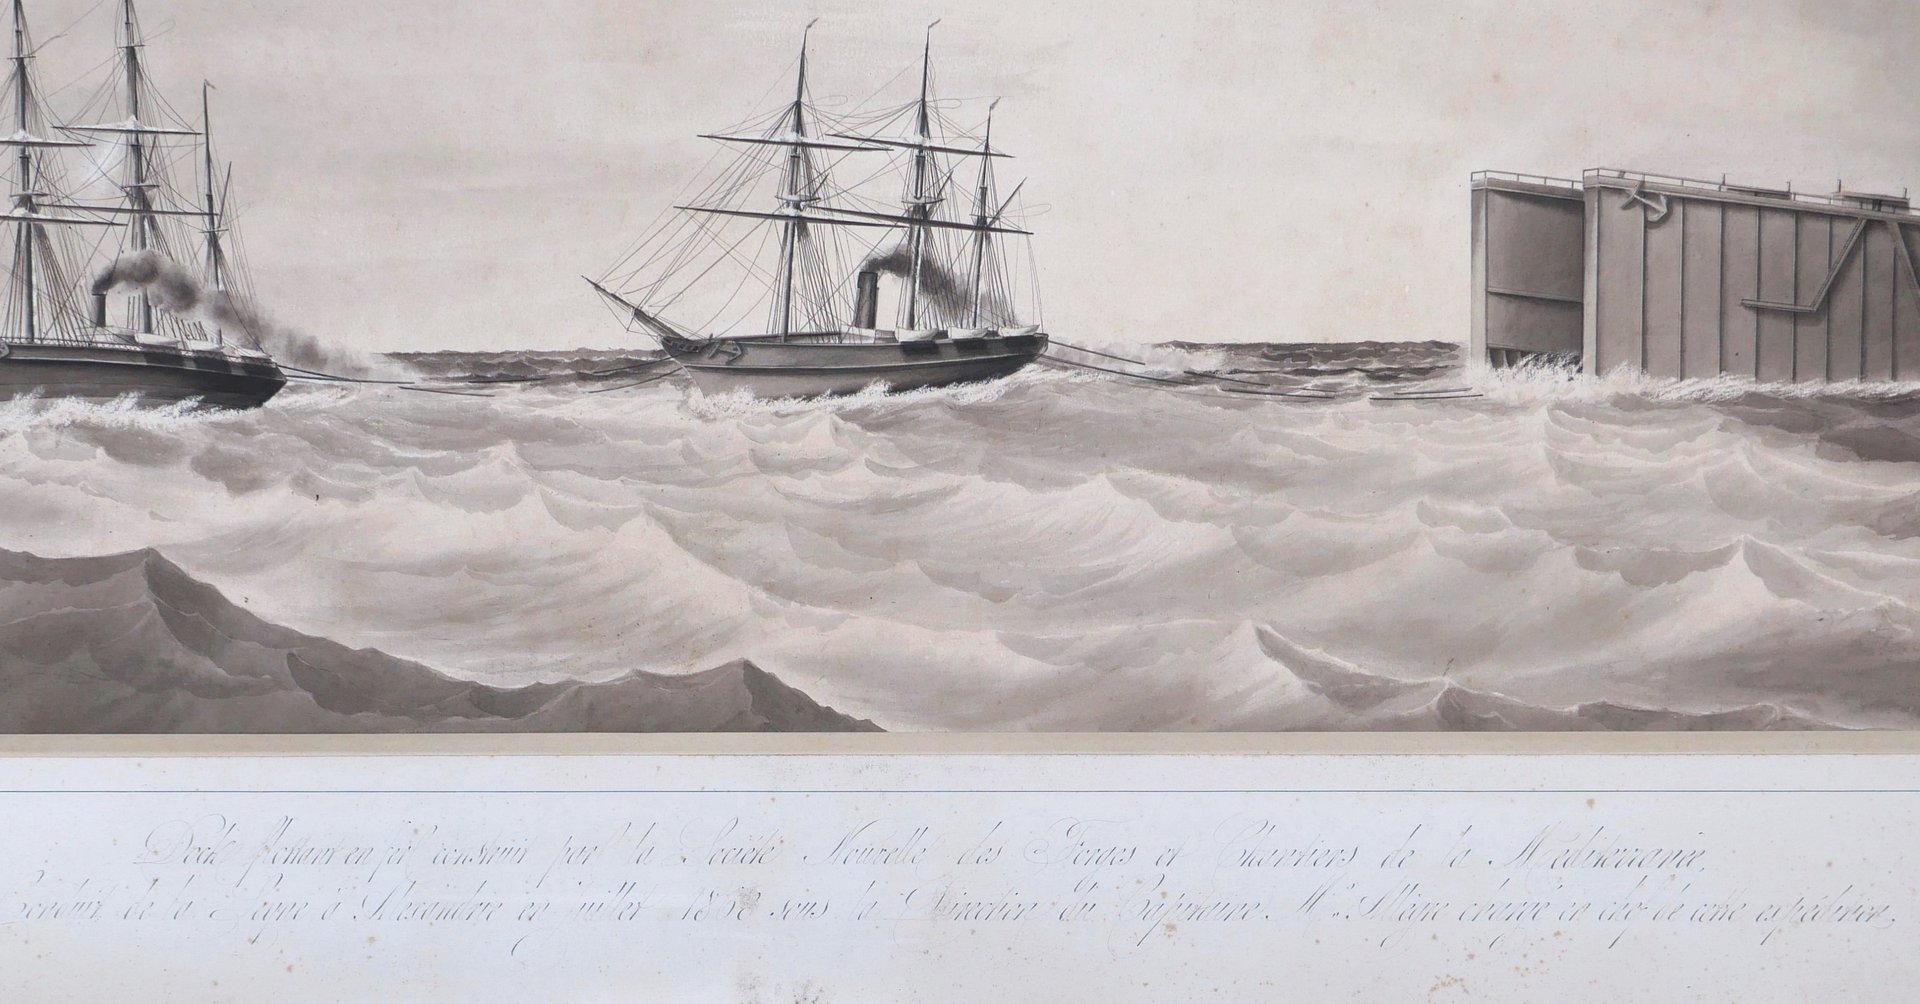 Dock flottant en fer construit par la Société Nouvelle des Forges et Chantiers de la Méditerranée,
Conduit de la Seyne à Alexandrie en juillet 1868 sous la Direction du Capitaine Mr. Allègre chargé en chef de cette expédition.